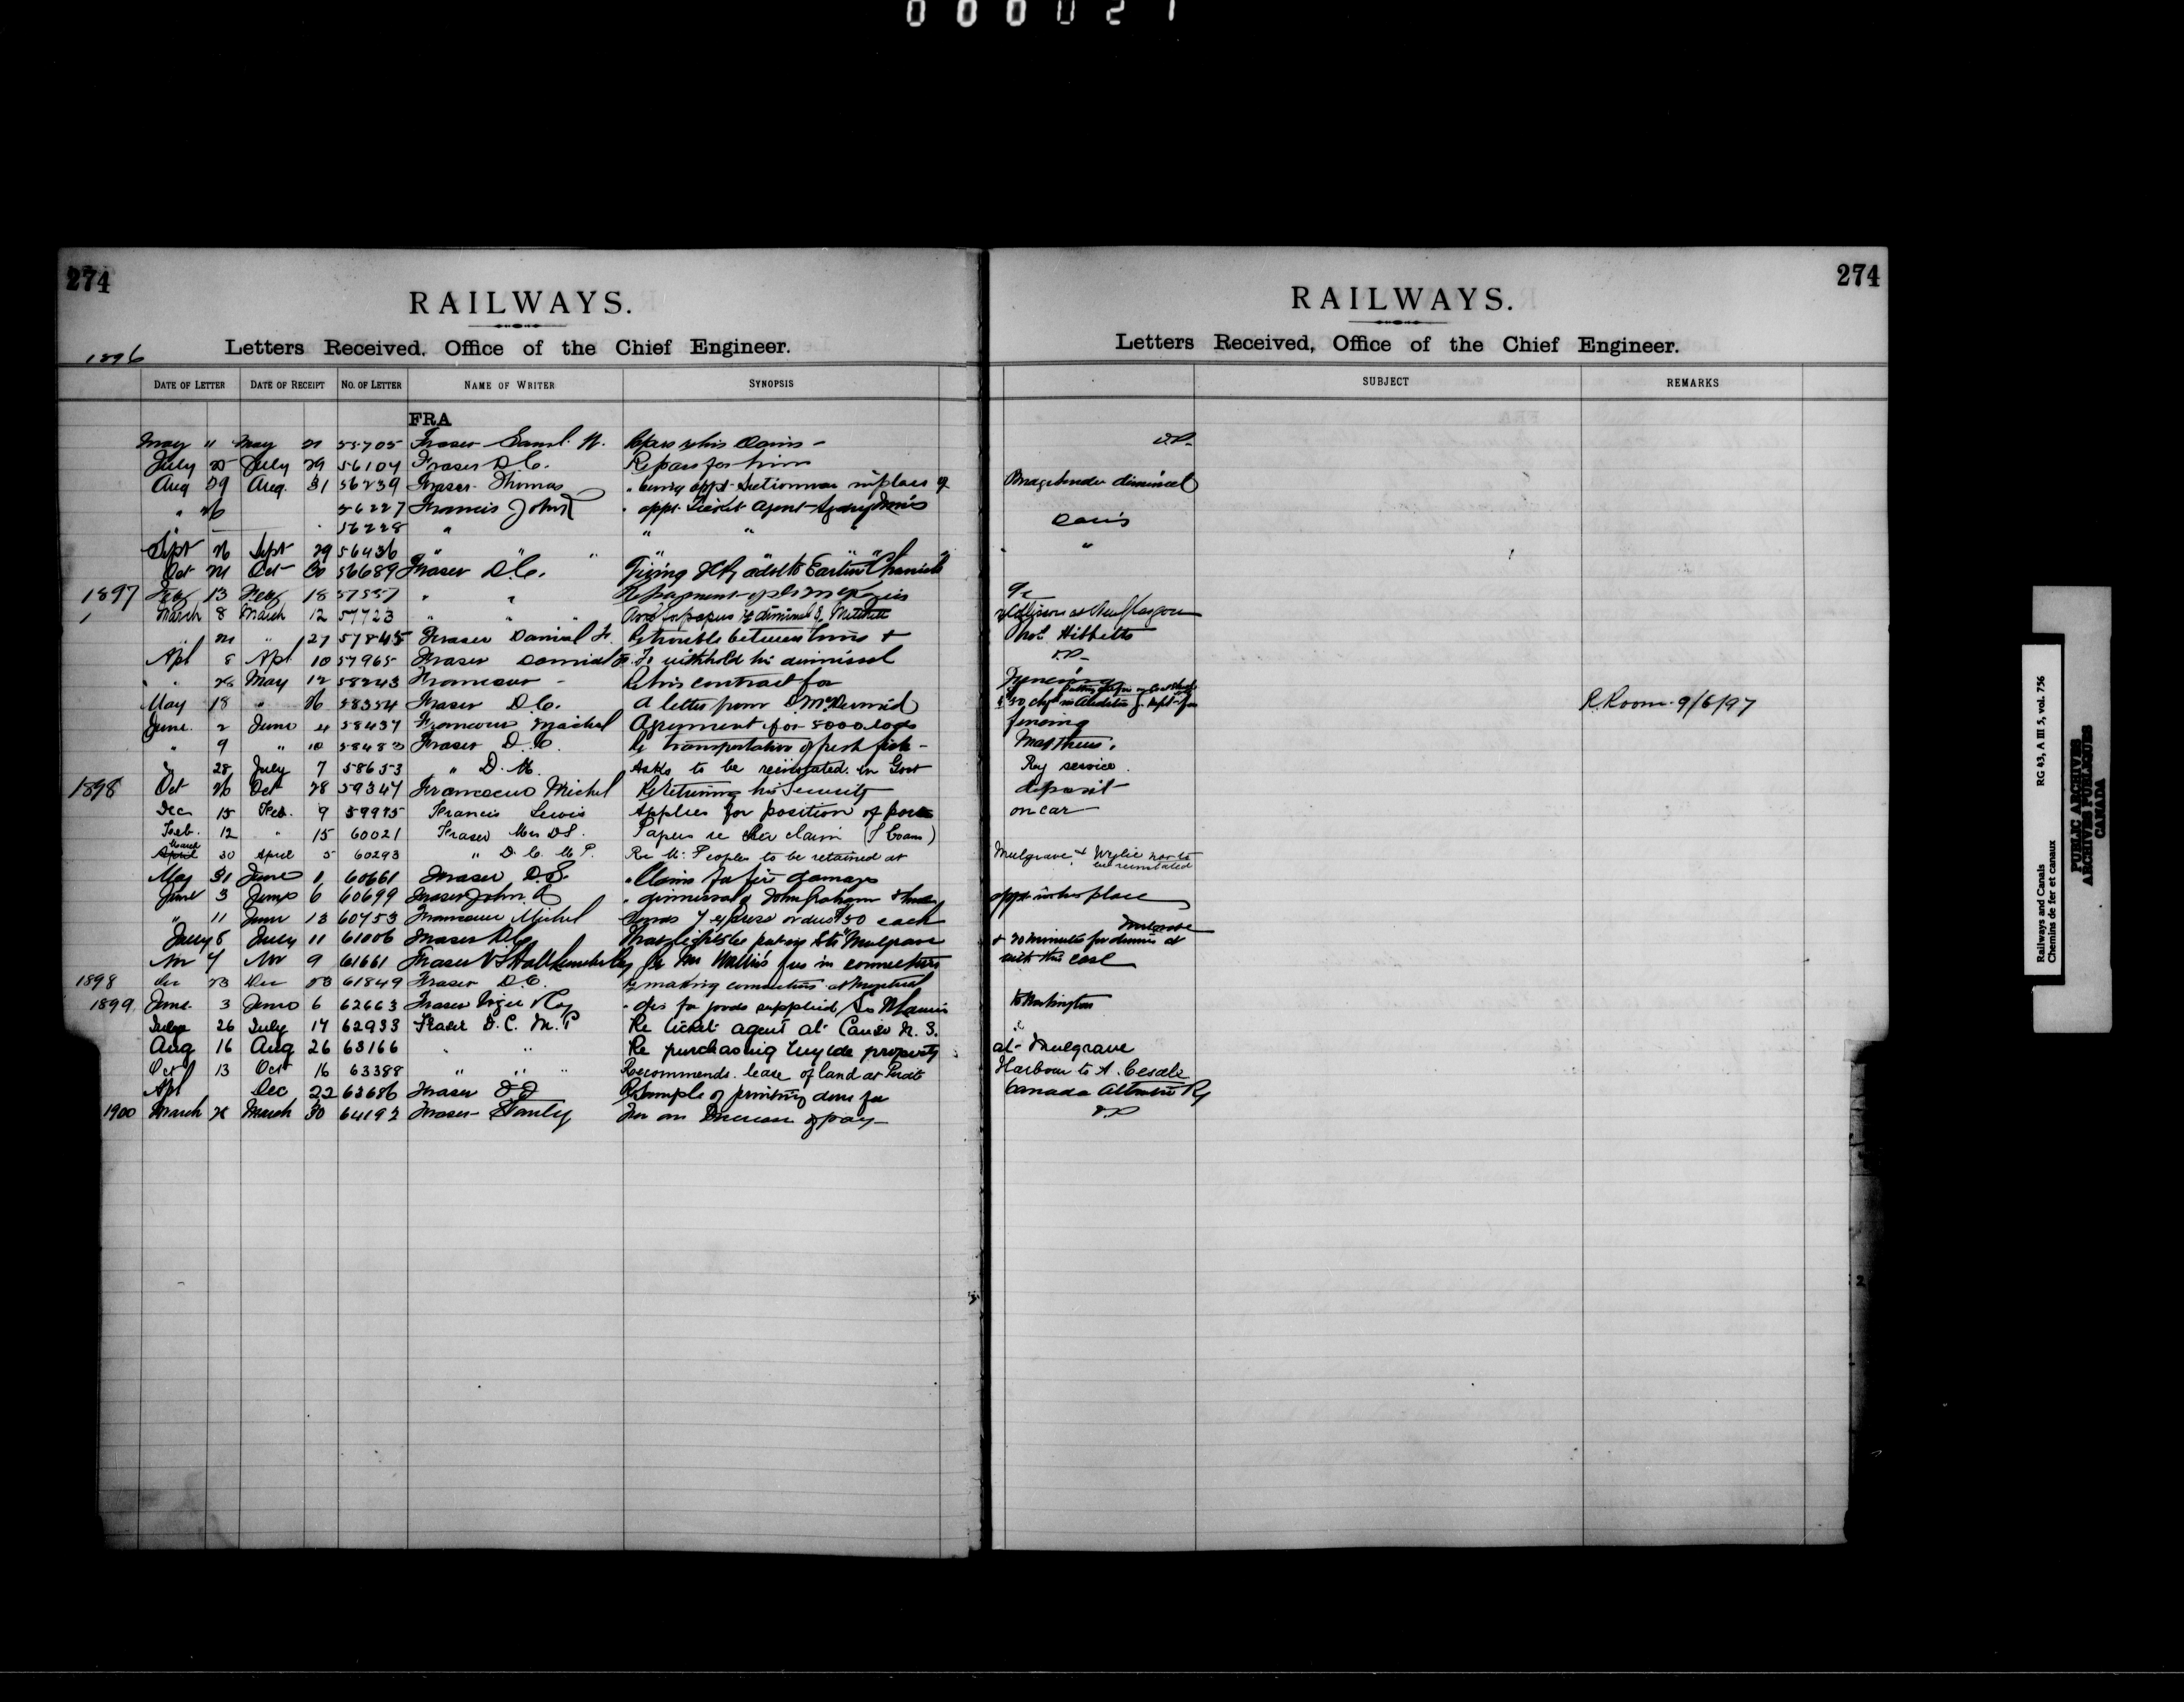 000027
274
RAILWAYS.
Letters Received, Office of the Chief Engineer.
1896
DATE OF LETTER DATE OF RECEIPT NO. OF LETTER NAME OF WRITER SYNOPSIS
FRA
May " May 21 55705 Fraser Saml. claim -
July 25 July 29 56104 Fraser D.C. Re pass for him
Aug 29 Aug. 31 56239 Fraser Thomas " being appt. Sectionman in place of
" 26 56227 Francis John " appt. Ticket Agent Sydney Mines
56228 " " "
Sept 26 Sept 29 56436 " " "
Oct 21 Oct 30 56689 Fraser D.C. Giving Ry advt to Eastern Chronicle
1897 Feby 13 Feby 18 57557 " " Re payment
March 8 March 12 57723 " " papers re dismissal of Mitchell
" 27 57845 Fraser Daniel Re trouble between him &
Apl 8 Apl 10 57965 Fraser Daniel To withhold his dismissal
" 28 May 12 58243 Francoeur - Re his contract for
May 18 " 26 58354 Fraser D.C. A letter from D McDermid
June 2 June 4 58437 Francoeur Michel Agreement for 8000 logs
" 9 " 10 58483 Fraser D.C. Re transportation of fresh fish -
" 28 July 7 58653 " D. M. Asks to be reinstated in Govt
1898 Oct 26 Oct 28 59347 Francoeur Michel Re returning his Security
Dec 15 Feb. 9 59975 Francis Lewis Applies for position of porter
Feb. 12 " 15 60021 Fraser Mrs DS. Papers re her claim
March 30 April 5 60293 " D. C. M P. Re Mr. Peoples to be retained at
May 31 June 1 60661 Fraser D.S. " Claim for fire damages
June 3 June 6 60699 Fraser John A " dismissal of John Graham &
" 11 June 13 60753 Francoeur Michel Sends 7 express orders $50 each
July 5 July 11 61006 Fraser D.C. Mulgrave
Nov 7 Nov 9 61661 Fraser Re Mr Wallis' fees in connection
1898 Dec 23 Dec 23 61849 Fraser D.C. Re making connection at Montreal
1899 June 3 June 6 62663 Fraser Viger & Coy " for goods supplied
July 26 July 17 62933 Fraser D. C. M. P Re ticket agent at Canso N. S.
Aug 16 Aug 26 63166 " " Re purchasing Wylde property
Oct 13 Oct 16 63388 " " " Recommends lease of land at Pirate
Apl Dec 22 63686 Fraser Re Sample of printing done for
1900 March 28 March 30 64192 Fraser Stanley For an Increase of pay -
274
RAILWAYS.
Letters Received, Office of the Chief Engineer.
SUBJECT REMARKS
dismissal
Davis
"
Collision at New Glasgow
Hibbetts
Fencing
R. Room 9/6/97
fencing
Matthews.
Ry service.
deposit
on car
Mulgrave & Wylie not to be reinstated
appt in his place
Mulgrave
& 20 minutes for dinner at
with this case
at Mulgrave
Harbour to A.
Canada Atlantic Ry
Railways and Canals
Chemins de fer et canaux
RG 43, A III 5, vol. 756
PUBLIC ARCHIVES
ARCHIVES PUBLIQUES
CANADA